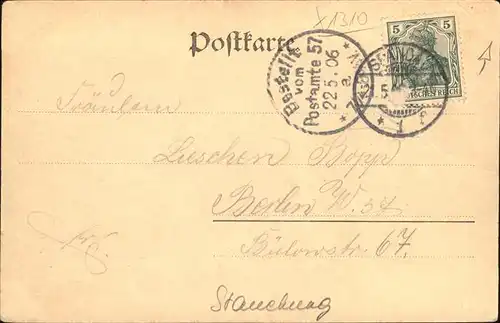 X1310
Postkarte
5 5
DEUTSCHES REICH
Bestellt
vom
Postamte 57
22.5.06
Fräulein
Luschen Bopp
Berlin W. 57
Bülowstr 67.
Stauchung